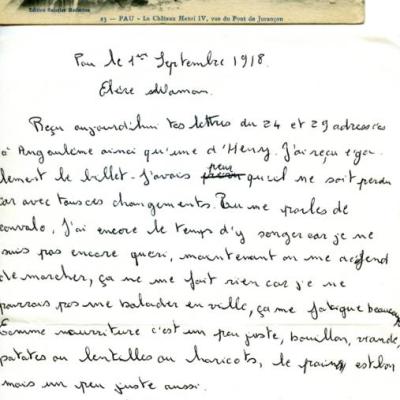 Edition Sartier Bordeaux
23 — PAU - Le Château Henri IV, vue du Pont de Jurançon
Pau le 1er Septembre 1918.
Chère Maman.
Reçu aujourd'hui tes lettres du 24 et 29 adressées
à Angoulème ainsi qu'une d'Henry. J'ai reçu éga-
lement le billet. J'avais peur qu'il ne soit perdu
car avec tous ces changements. Tu me parles de
convalo, j'ai encore le temps d'y songer car je ne
suis pas encore guéri, maintenant on me défend
de marcher, ça ne me fait rien car je ne
pourrais pas me balader en ville, ça me fatigue beaucoup
Comme nourriture c'est un peu juste, bouillon, viande,
patates ou lentilles ou haricots, le pain est bon
mais un peu juste aussi.